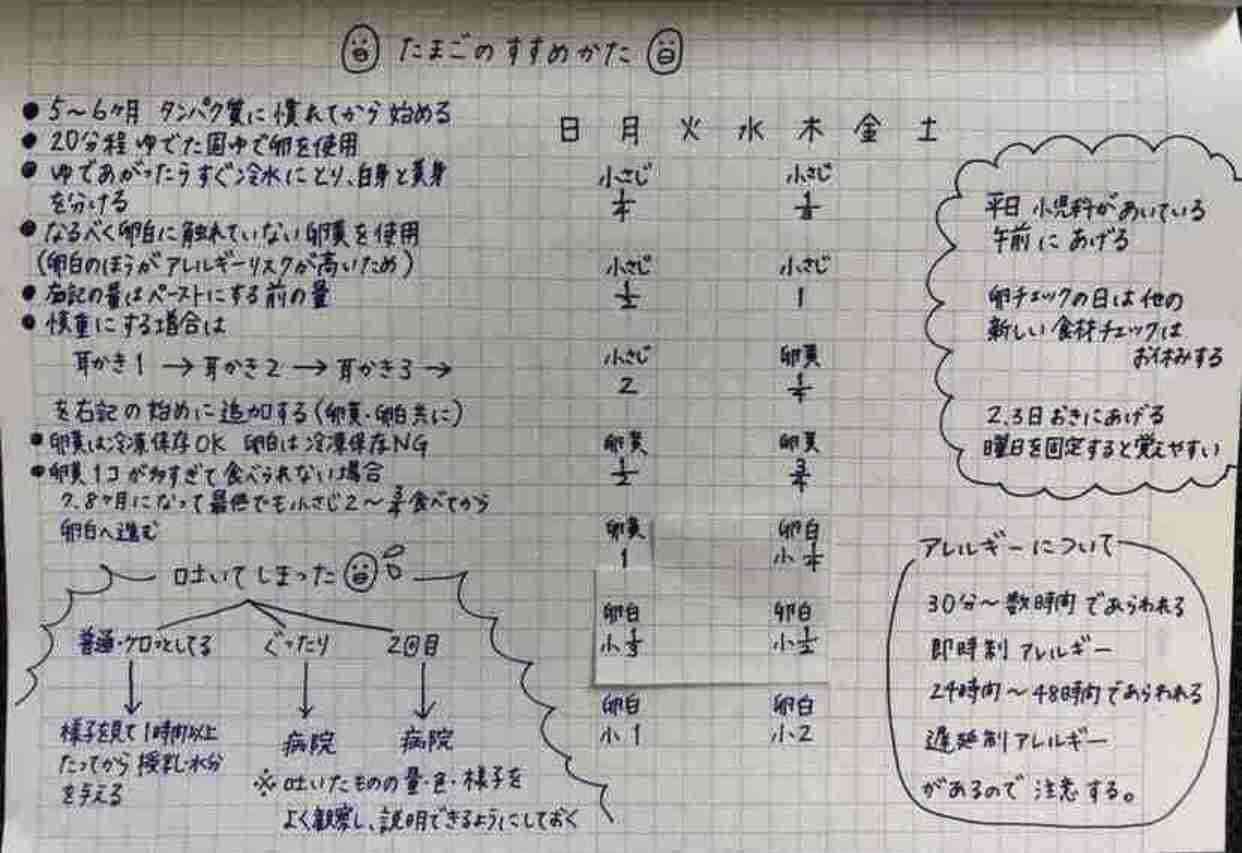 たまごのすすめかた
● 5〜6ヶ月 タンパク質に慣れてから始める
● 20分程ゆでた固ゆで卵を使用
● ゆであがったらすぐ冷水にとり、白身と黄身
を分ける
● なるべく卵白に触れていない卵黄を使用
(卵白のほうがアレルギーリスクが高いため)
● 右記の量はペーストにする前の量
● 慎重にする場合は
耳かき1 → 耳かき2 → 耳かき3 →
を右記の始めに追加する(卵黄・卵白共に)
● 卵黄は冷凍保存OK 卵白は冷凍保存NG
● 卵黄1コが多すぎて食べられない場合
7.8ヶ月になって最低でも小さじ2〜3/4食べてから
卵白へ進む
日 月 火 水 木 金 土
小さじ 小さじ
1/4
小さじ 小さじ
1/2 1
小さじ 卵黄
2 1/4
卵黄 卵黄
1/2 3/4
卵黄 卵白
1 小1/4
卵白 卵白
小1/3 小1/2
卵白 卵白
小1 小2
平日 小児科があいている
午前にあげる
卵チェックの日は他の
新しい食材チェックは
お休みする
2.3日おきにあげる
曜日を固定すると覚えやすい
吐いてしまった
普通・ケロッとしてる ぐったり 2回目
↓ ↓ ↓
様子を見て1時間以上
たってから授乳・水分
を与える
病院 病院
※吐いたものの量・色・様子を
よく観察し、説明できるようにしておく
アレルギーについて
30分〜数時間であらわれる
即時制アレルギー
24時間〜48時間であらわれる
遅延制アレルギー
があるので注意する。